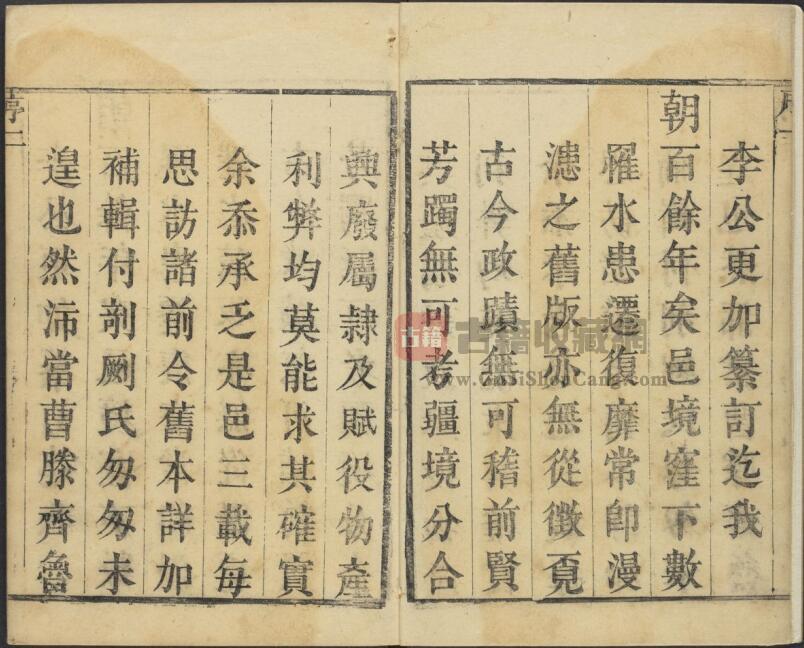 李公更加纂訂迄我
朝百餘年矣邑境窪下數
罹水患遷復靡常卽漫
漶之舊版亦無從徵覔
古今政蹟無可稽前賢
芳躅無可考疆境分合
興廢屬隸及賦役物產
利弊均莫能求其確實
余忝承乏是邑三載每
思訪諸前令舊本詳加
補輯付剞劂氏匆匆未
遑也然沛當曹滕齊魯
序一
序二
古籍
古籍收藏網
www.GuJiShouCang.com